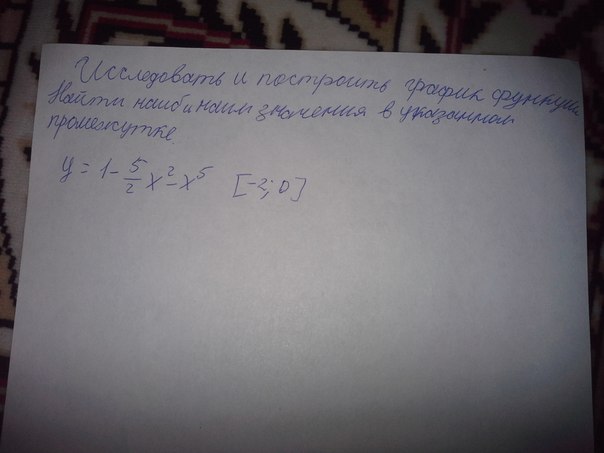 Исследовать и построить график функции
Найти наиб и наим значения в указанном
промежутке.
y = 1 - 5/2 x² - x⁵ [-2; 0]